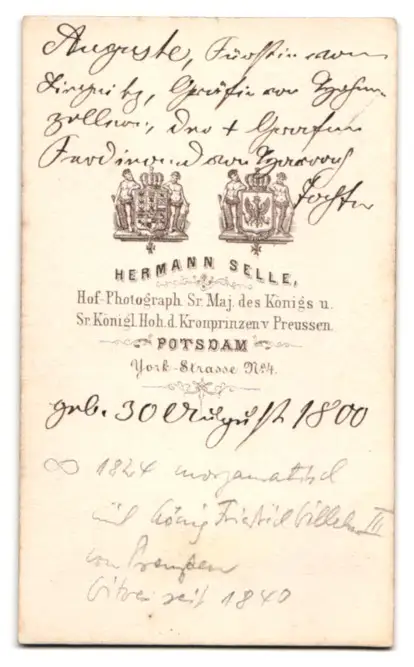 Auguste, Fürstin von
Liegnitz, Gräfin von Hohen
zollern, des + Grafen
Ferdinand von Harrach
Tochter
HERMANN SELLE,
Hof-Photograph Sr. Maj. des Königs u.
Sr. Königl. Hoh. d. Kronprinzen v Preussen.
POTSDAM
York-Strasse No. 4.
geb. 30 August 1800
∞ 1824 morganatisch
mit König Friedrich Wilhelm III
von Preußen
Witwe seit 1840